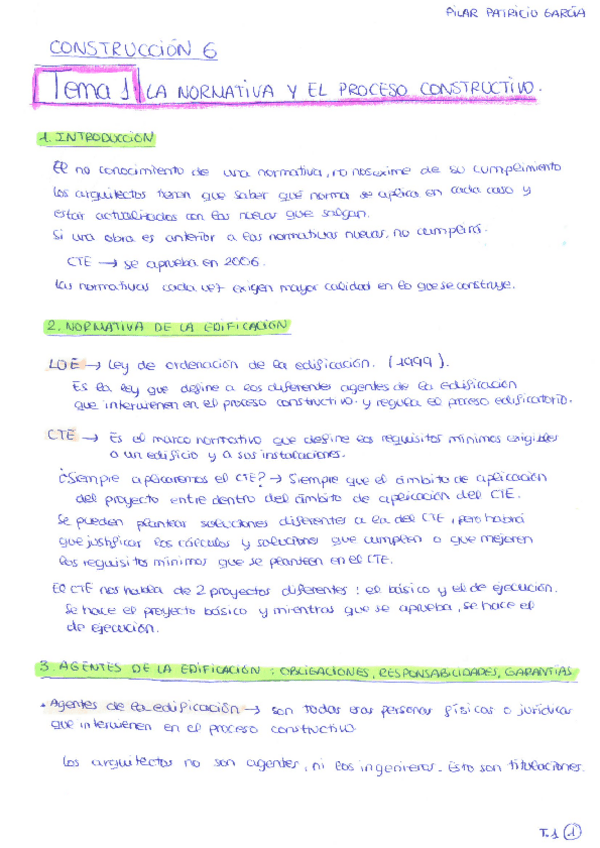 PILAR PATRICIO GARCÍA
CONSTRUCCIÓN 6
Tema 1 LA NORMATIVA Y EL PROCESO CONSTRUCTIVO.
1. INTRODUCCIÓN
El no conocimiento de una normativa, no nos exime de su cumplimiento
Los arquitectos tienen que saber qué norma se aplica en cada caso y
estar actualizados con las nuevas que salgan.
Si una obra es anterior a las normativas nuevas, no cumplirá.
CTE → se aprueba en 2006.
Las normativas cada vez exigen mayor calidad en lo que se construye.
2. NORMATIVA DE LA EDIFICACIÓN
LOE → Ley de ordenación de la edificación. (1999).
Es la ley que define a los diferentes agentes de la edificación
que intervienen en el proceso constructivo. y regula el proceso edificatorio.
CTE → Es el marco normativo que define los requisitos mínimos exigibles
a un edificio y a sus instalaciones.
¿Siempre aplicaremos el CTE? → Siempre que el ámbito de aplicación
del proyecto entre dentro del ámbito de aplicación del CTE.
Se pueden plantear soluciones diferentes a la del CTE, pero habrá
que justificar los cálculos y soluciones que cumplen o que mejoren
los requisitos mínimos que se plantean en el CTE.
El CTE nos habla de 2 proyectos diferentes: el básico y el de ejecución.
Se hace el proyecto básico y mientras que se aprueba, se hace el
de ejecución.
3. AGENTES DE LA EDIFICACIÓN: OBLIGACIONES, RESPONSABILIDADES, GARANTÍAS
• Agentes de la edificación → son todas esas personas físicas o jurídicas
que intervienen en el proceso constructivo.
Los arquitectos no son agentes, ni los ingenieros. Esto son titulaciones.
T.1 1